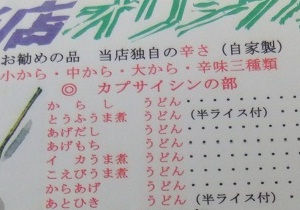 店オリジナル
お勧めの品 当店独自の辛さ(自家製)
小から・中から・大から・辛味三種類
◎ カプサイシンの部
からし うどん・・・・・・・・
とうふうま煮 うどん(半ライス付)・・
あげだし うどん・・・・・・・・
あげもち うどん・・・・・・・・
イカうま煮 うどん・・・・・・・・
こえびうま煮 うどん・・・・・・・・
からあげ うどん(半ライス付)・・
あとひき うどん・・・・・・・・